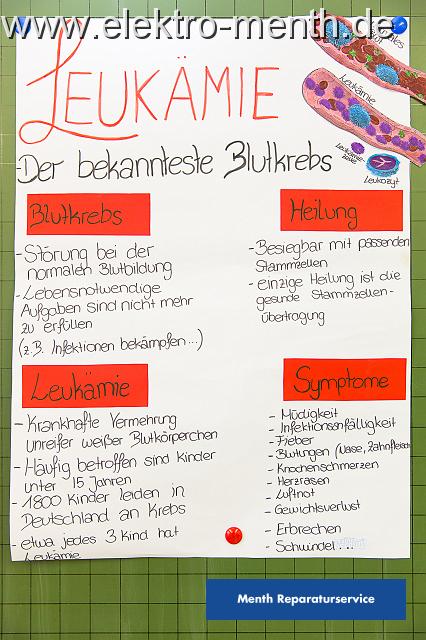 www.elektro-menth.de
LEUKÄMIE
Leukämie
Leukämie-
zelle
Leukozyt
-Der bekannteste Blutkrebs
Blutkrebs
-Störung bei der
normalen Blutbildung
-Lebensnotwendige
Aufgaben sind nicht mehr
zu erfüllen
(z.B. Infektionen bekämpfen...)
Heilung
-Besiegbar mit passenden
Stammzellen
-einzige Heilung ist die
gesunde Stammzellen-
übertragung
Leukämie
- Krankhafte Vermehrung
unreifer weißer Blutkörperchen
- Häufig betroffen sind Kinder
unter 15 Jahren
- 1800 Kinder leiden in
Deutschland an Krebs
- etwa jedes 3 Kind hat
Leukämie
Symptome
- Müdigkeit
- Infektionsanfälligkeit
- Fieber
- Blutungen (Nase, Zahnfleisch)
- Knochenschmerzen
- Herzrasen
- Luftnot
- Gewichtsverlust
- Erbrechen
- Schwindel...
Menth Reparaturservice